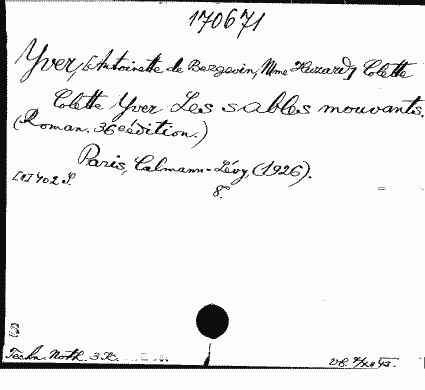 170671
Yver, [Antoinette de Bergevin, Mme Huzard] Colette
Colette Yver Les sables mouvants.
(Roman. 36e édition.)
Paris, Calmann-Lévy, (1926).
402 S. 8.
Techn. Noth. 3 K.